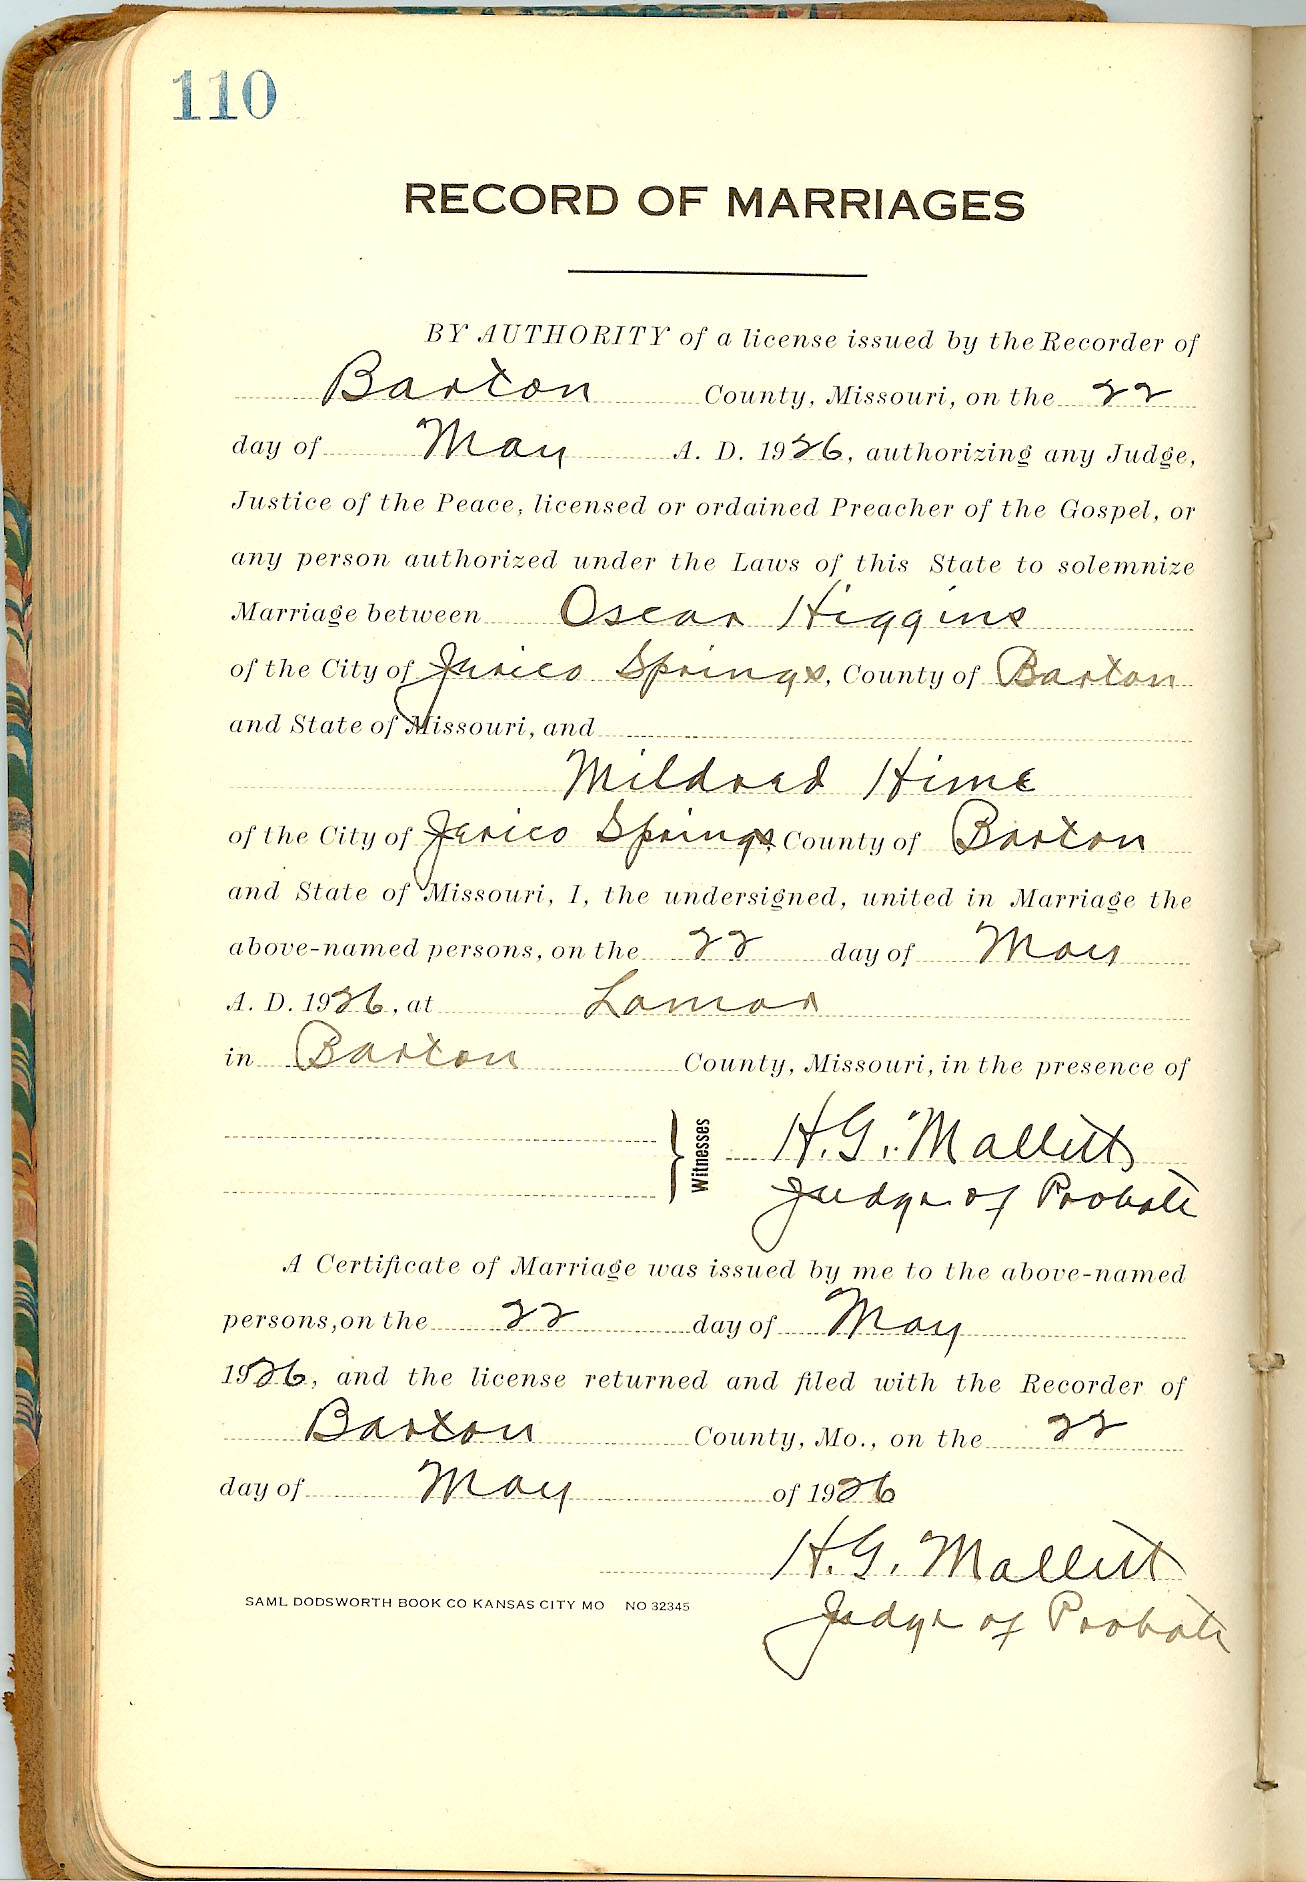 110
RECORD OF MARRIAGES
BY AUTHORITY of a license issued by the Recorder of
Barton County, Missouri, on the 22
day of May A. D. 1926, authorizing any Judge,
Justice of the Peace, licensed or ordained Preacher of the Gospel, or
any person authorized under the Laws of this State to solemnize
Marriage between Oscar Higgins
of the City of Jerico Springs, County of Barton
and State of Missouri, and
Mildred Hime
of the City of Jerico Springs, County of Barton
and State of Missouri, I, the undersigned, united in Marriage the
above-named persons, on the 22 day of May
A. D. 1926, at Lamar
in Barton County, Missouri, in the presence of
Witnesses H. G. Mallett
Judge of Probate
A Certificate of Marriage was issued by me to the above-named
persons, on the 22 day of May
1926, and the license returned and filed with the Recorder of
Barton County, Mo., on the 22
day of May of 1926
H. G. Mallett
SAML DODSWORTH BOOK CO KANSAS CITY MO NO 32345
Judge of Probate